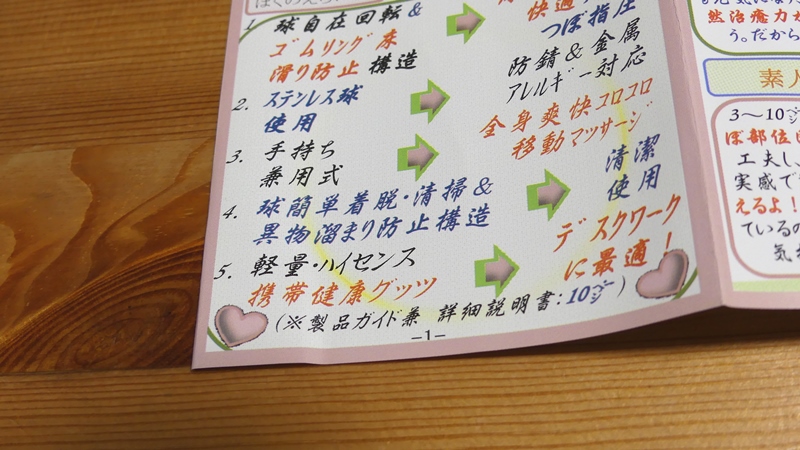 1. 球自在回転&
ゴムリング床
滑り防止 構造
快適
つぼ指圧
2. ステンレス球
使用
防錆&金属
アレルギー対応
3. 手持ち
兼用式
全身爽快コロコロ
移動マッサージ
4. 球簡単着脱・清掃&
異物溜まり防止構造
清潔
使用
5. 軽量・ハイセンス
携帯健康グッツ
デスクワーク
に最適!
(※製品ガイド兼 詳細説明書:10ページ)
−1−
然治癒力が
う。だから
素人
3〜10ページ
ぼ部位に
工夫し、
実感で
えるよ!
ているの
気持